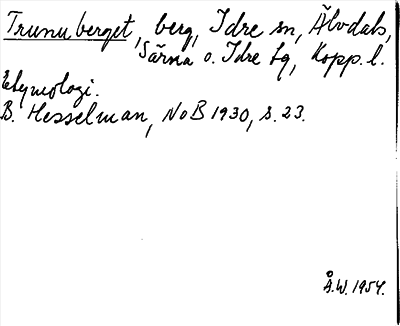 Trunuberget, berg, Idre sn, Älvdals,
Särna o. Idre tg, Kopp. l.
Etymologi.
B. Hesselman, NoB 1930, s. 23.
Å.W. 1954.